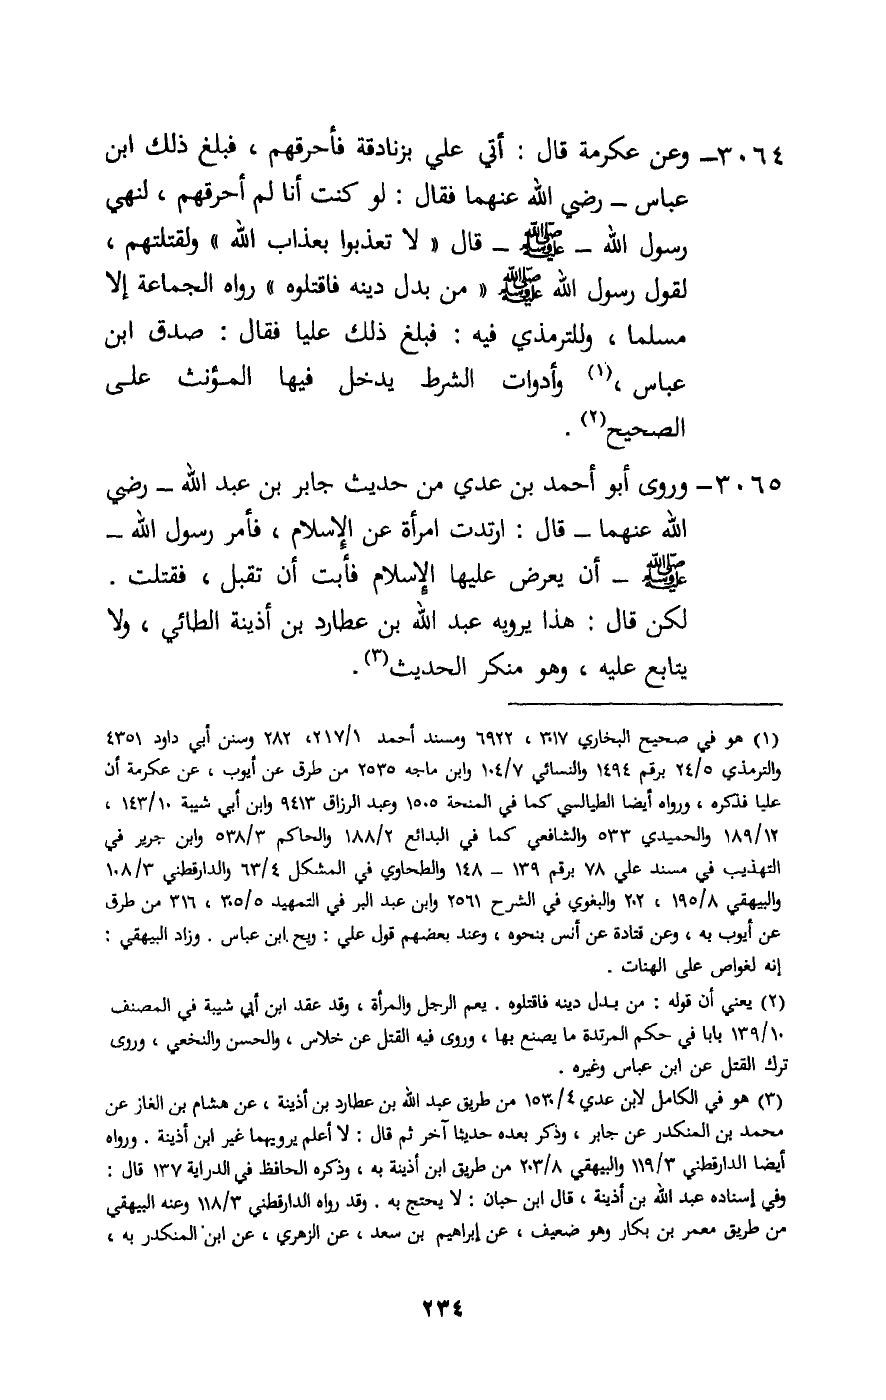 ٣٠٦٤ــ وعن عكرمة قال : أتي علي بزنادقة فأحرقهم ، فبلغ ذلك ابن
عباس ــ رضي الله عنهما فقال : لو كنت أنا لم أحرقهم ، لنهي
رسول الله ــ ﷺ ــ قال « لا تعذبوا بعذاب الله » ولقتلتهم ،
لقول رسول الله ﷺ « من بدل دينه فاقتلوه » رواه الجماعة إلا
مسلما ، وللترمذي فيه : فبلغ ذلك عليا فقال : صدق ابن
عباس ،(١) وأدوات الشرط يدخل فيها المؤنث على
الصحيح(٢) .
٣٠٦٥ــ وروى أبو أحمد بن عدي من حديث جابر بن عبد الله ــ رضي
الله عنهما ــ قال : ارتدت امرأة عن الإسلام ، فأمر رسول الله ــ
ﷺ ــ أن يعرض عليها الإسلام فأبت أن تقبل ، فقتلت .
لكن قال : هذا يرويه عبد الله بن عطارد بن أذينة الطائي ، ولا
يتابع عليه ، وهو منكر الحديث(٣).
(١) هو في صحيح البخاري ٣٠١٧ ، ٦٩٢٢ ومسند أحمد ٢١٧/١، ٢٨٢ وسنن أبي داود ٤٣٥١
والترمذي ٢٤/٥ برقم ١٤٩٤ والنسائي ١٠٤/٧ وابن ماجه ٢٥٣٥ من طرق عن أيوب ، عن عكرمة أن
عليا فذكره ، ورواه أيضا الطيالسي كما في المنحة ١٥٠٥ وعبد الرزاق ٩٤١٣ وابن أبي شيبة ١٤٣/١٠ ،
١٨٩/١٢ والحميدي ٥٣٣ والشافعي كما في البدائع ١٨٨/٢ والحاكم ٥٣٨/٣ وابن جرير في
التهذيب في مسند علي ٧٨ برقم ١٣٩ ــ ١٤٨ والطحاوي في المشكل ٦٣/٤ والدارقطني ١٠٨/٣
والبيهقي ١٩٥/٨ ، ٢٠٢ والبغوي في الشرح ٢٥٦١ وابن عبد البر في التمهيد ٣٠٥/٥ ، ٣١٦ من طرق
عن أيوب به ، وعن قتادة عن أنس بنحوه ، وعند بعضهم قول علي : ويح ابن عباس . وزاد البيهقي :
إنه لغواص على الهنات .
(٢) يعني أن قوله : من بدل دينه فاقتلوه . يعم الرجل والمرأة ، وقد عقد ابن أبي شيبة في المصنف
١٣٩/١٠ بابا في حكم المرتدة ما يصنع بها ، وروى فيه القتل عن خلاس ، والحسن والنخعي ، وروى
ترك القتل عن ابن عباس وغيره .
(٣) هو في الكامل لابن عدي ١٥٣٠/٤ من طريق عبد الله بن عطارد بن أذينة ، عن هشام بن الغاز عن
محمد بن المنكدر عن جابر ، وذكر بعده حديثا آخر ثم قال : لا أعلم يرويهما غير ابن أذينة . ورواه
أيضا الدارقطني ١١٩/٣ والبيهقي ٢٠٣/٨ من طريق ابن أذينة به ، وذكره الحافظ في الدراية ١٣٧ قال :
وفي إسناده عبد الله بن أذينة ، قال ابن حبان : لا يحتج به . وقد رواه الدارقطني ١١٨/٣ وعنه البيهقي
من طريق معمر بن بكار وهو ضعيف ، عن إبراهيم بن سعد ، عن الزهري ، عن ابن المنكدر به ،
٢٣٤